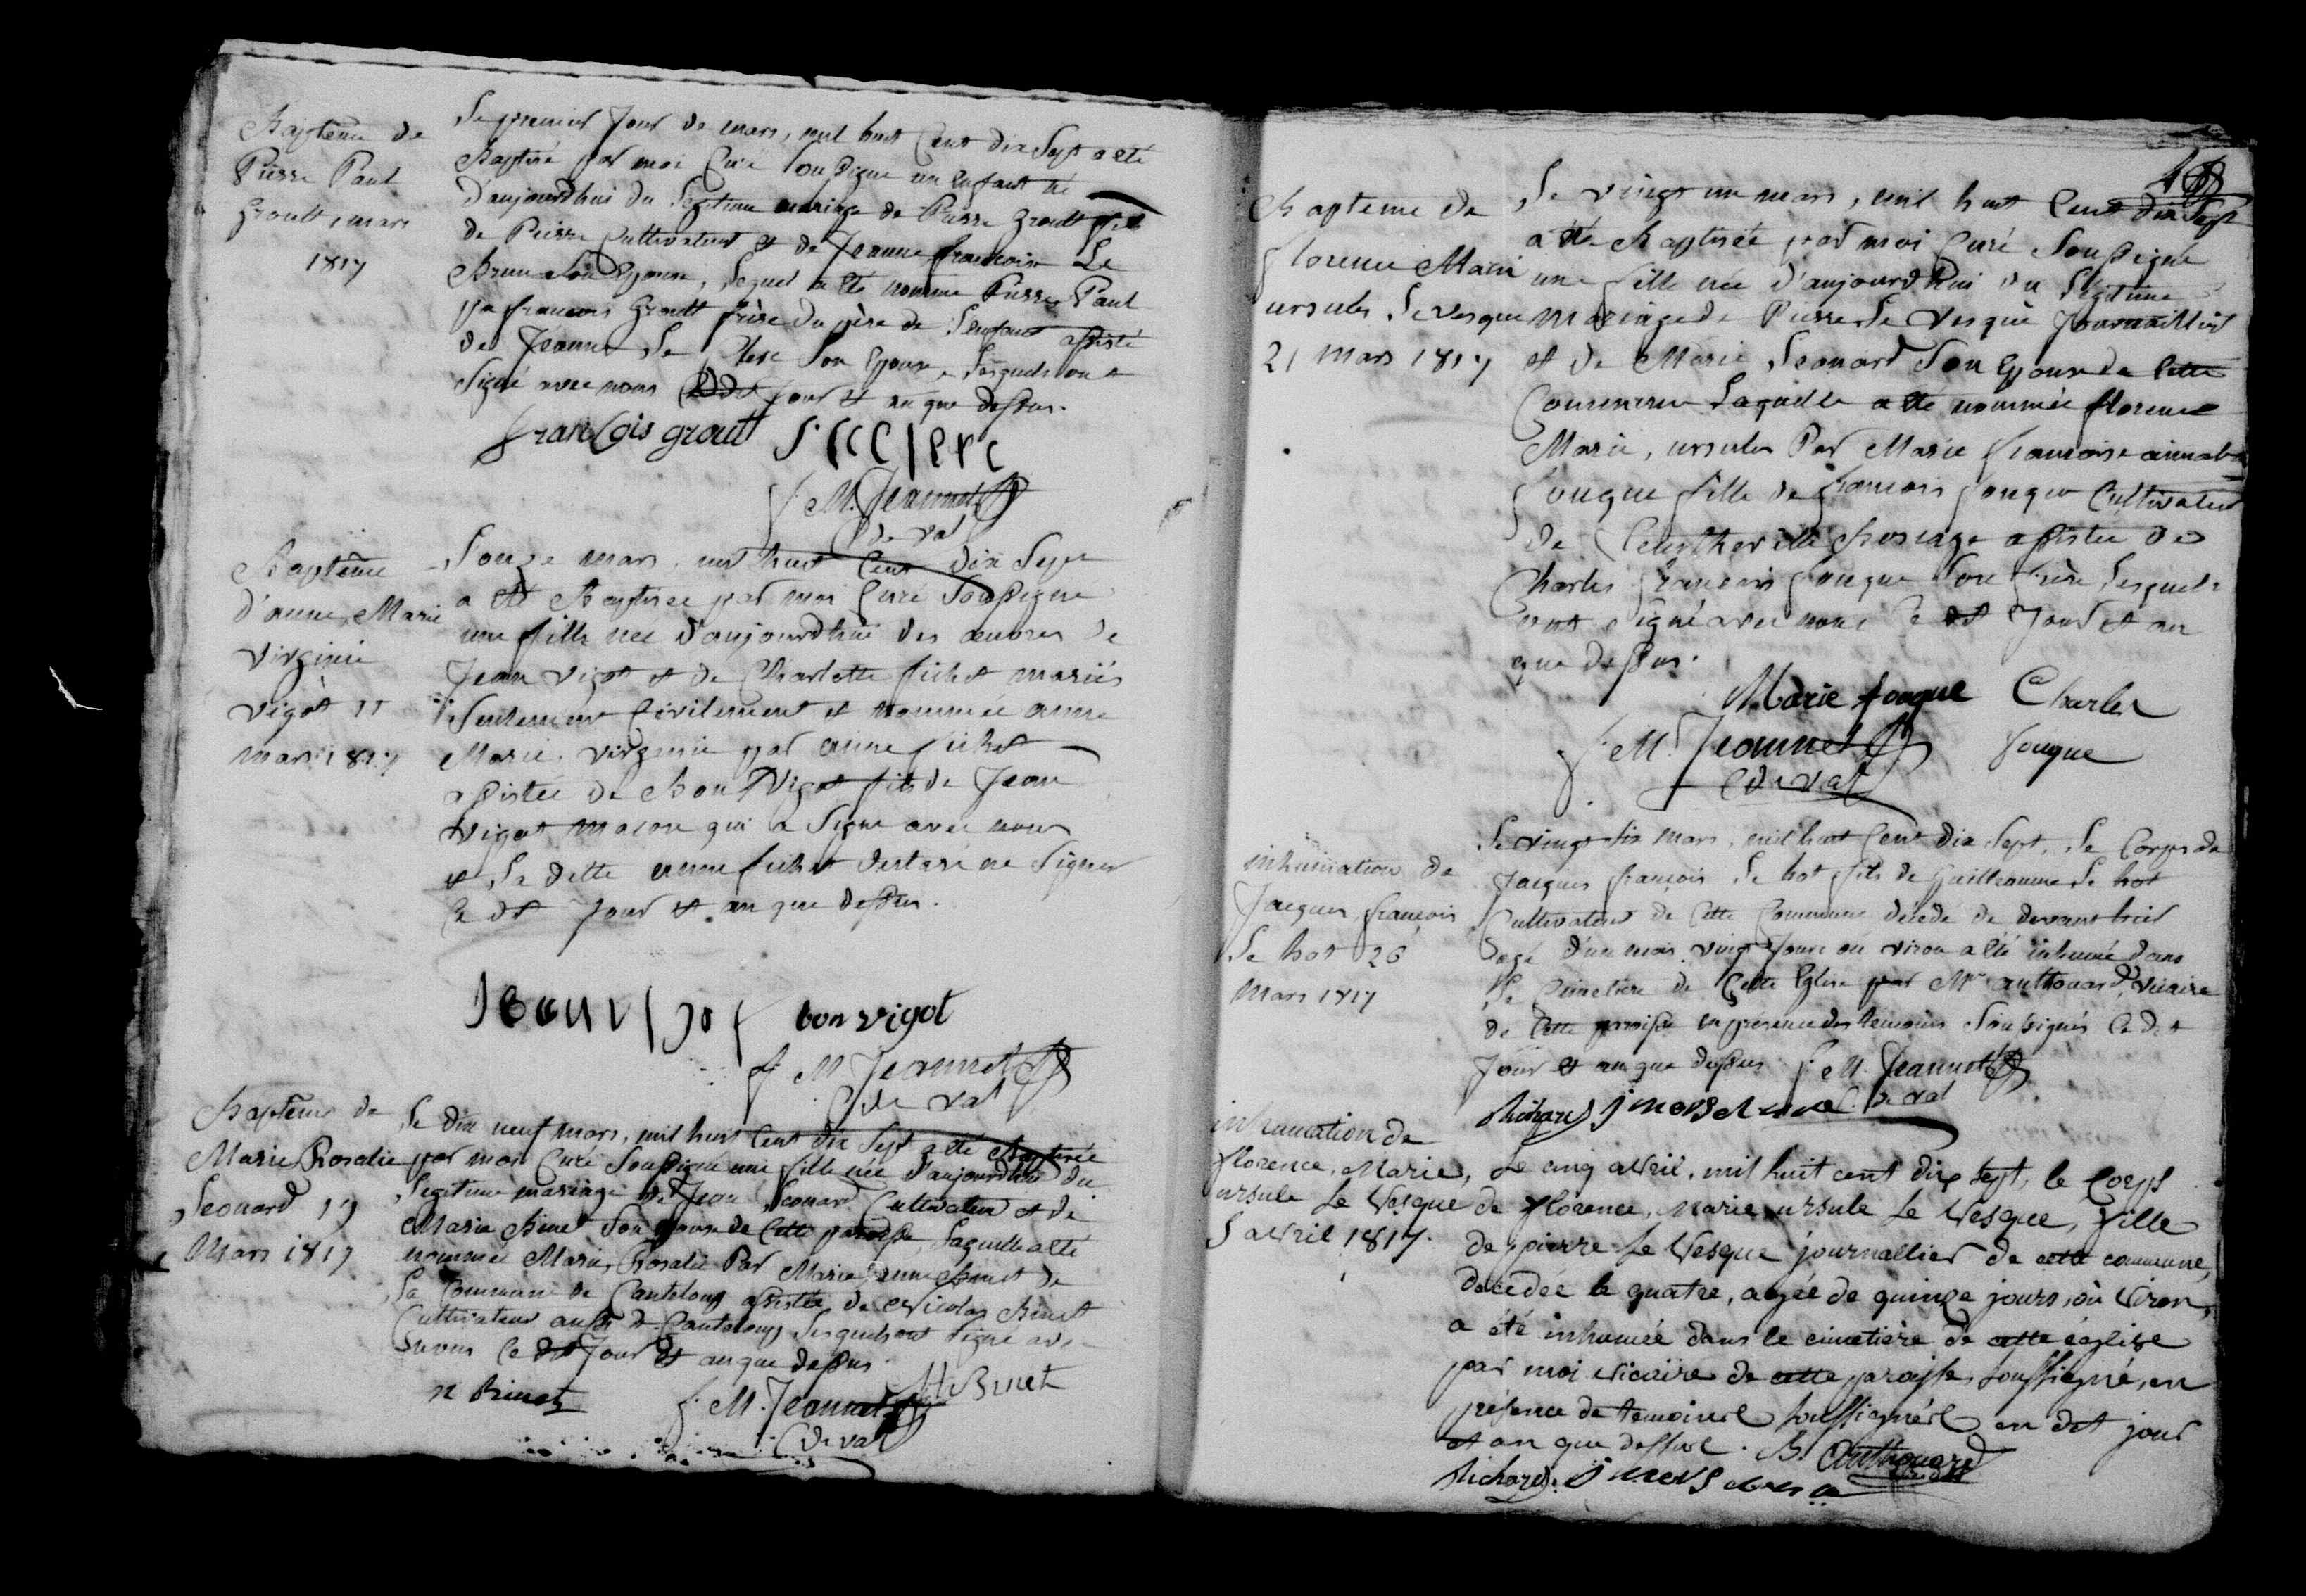 Baptême de
Pierre Paul
Groult, mars
1817
Le premier Jour de mars, mil huit Cent dix Sept a été
Baptisé par moi Curé Soussigné un Enfant né
d'aujourdhui du légitime mariage de Pierre Groult fils
de Pierre Cultivateur et de Jeanne francoise Le
Brun Son Epouse, lequel a été nommé Pierre Paul
par francois Groult frère du père de l'enfant assisté
de Jeanne Le Clerc Son Epouse, lesquels ont
Signé avec nous Ce dit Jour et an que dessus.
francois grout J leclerc
f. M. Jeannet
C de Val
Baptême
d'anne, Marie
Virginie
Vigot 11
mars 1817
L'onze mars, mil huit Cent dix Sept
a été Baptisée par moi Curé Soussigné
une fille née d'aujourdhui des œuvres de
Jean Vigot et de Charlotte fichet mariés
Seulement Civilement et nommée anne
Marie, Virginie par anne fichet
assistée de Bon Vigot fils de Jean
Vigot maçon qui a Signé avec nous
et la ditte anne fichet declaré ne Signer
Ce dt Jour et an que dessus.
Jean vigot bon vigot
f. M. Jeannet
C de Val
Baptême de
Marie Rosalie
Leonard 19
Mars 1817
Le dix neuf mars, mil huit Cent dix Sept a été Baptisée
par moi Curé Soussigné une fille née d'aujourdhui du
légitime mariage de Jean Leonard Cultivateur et de
Marie Binet Son Epouse de Cette paroisse, laquelle a été
nommée Marie, Rosalie Par Marie, anne Binet de
la Commune de Canteloup assistée de Nicolas Binet
Cultivateur aussi de Canteloup lesquels ont Signé avec
nous Ce dt Jour et an que dessus
n Binet f. M. Jeannet M Binet
C de Val
Bapteme de
florence Marie
ursule Levesque
21 mars 1817
Le vingt un mars, mil huit Cent dix Sept
a été Baptisée par moi Curé Soussigné
une fille née d'aujourdhui du légitime
mariage de Pierre Le Vesque Journaillier
et de Marie Leonard Son Epouse de Cette
Commune laquelle a été nommée florence
Marie, ursule Par Marie francoise aimable
fouque fille de francois fouque Cultivateur
de Bocage assistée de
Charles francois fouque Son frère lesquels
ont Signé avec nous Ce dt Jour et an
que dessus.
Marie fouque Charles
f. M. Jeannet fouque
C de Val
inhumation de
Jacques, françois
Le hot 26
Mars 1817
Le vingt Six mars, mil huit Cent dix Sept, le Corps de
Jacques françois Le hot fils de Guilleaume Le hot
Cultivateur de Cette Commune décédé de devant hier
agé d'un mois vingt Jours ou viron a été inhumé dans
le Cimetiere de Cette Eglise par Mr anthouard, Vicaire
de Cette paroisse en présence des temoins Soussignés Ce dt
Jour et an que dessus f. M. Jeannet
Richard C. de Val
inhumation de
florence, Marie,
ursule Le Vesque
5 avril 1817.
Le cinq avril, mil huit cent dix sept, le Corps
de florence, marie ursule Le Vesque, fille
de pierre Le Vesque journallier de cette commune,
décédée le quatre, agée de quinze jours, ou viron,
a été inhumée dans le cimetière de cette église
par moi vicaire de cette paroisse soussigné, en
présence de temoins soussignés en dt jour
et an que dessus. B. Anthouard
Richard